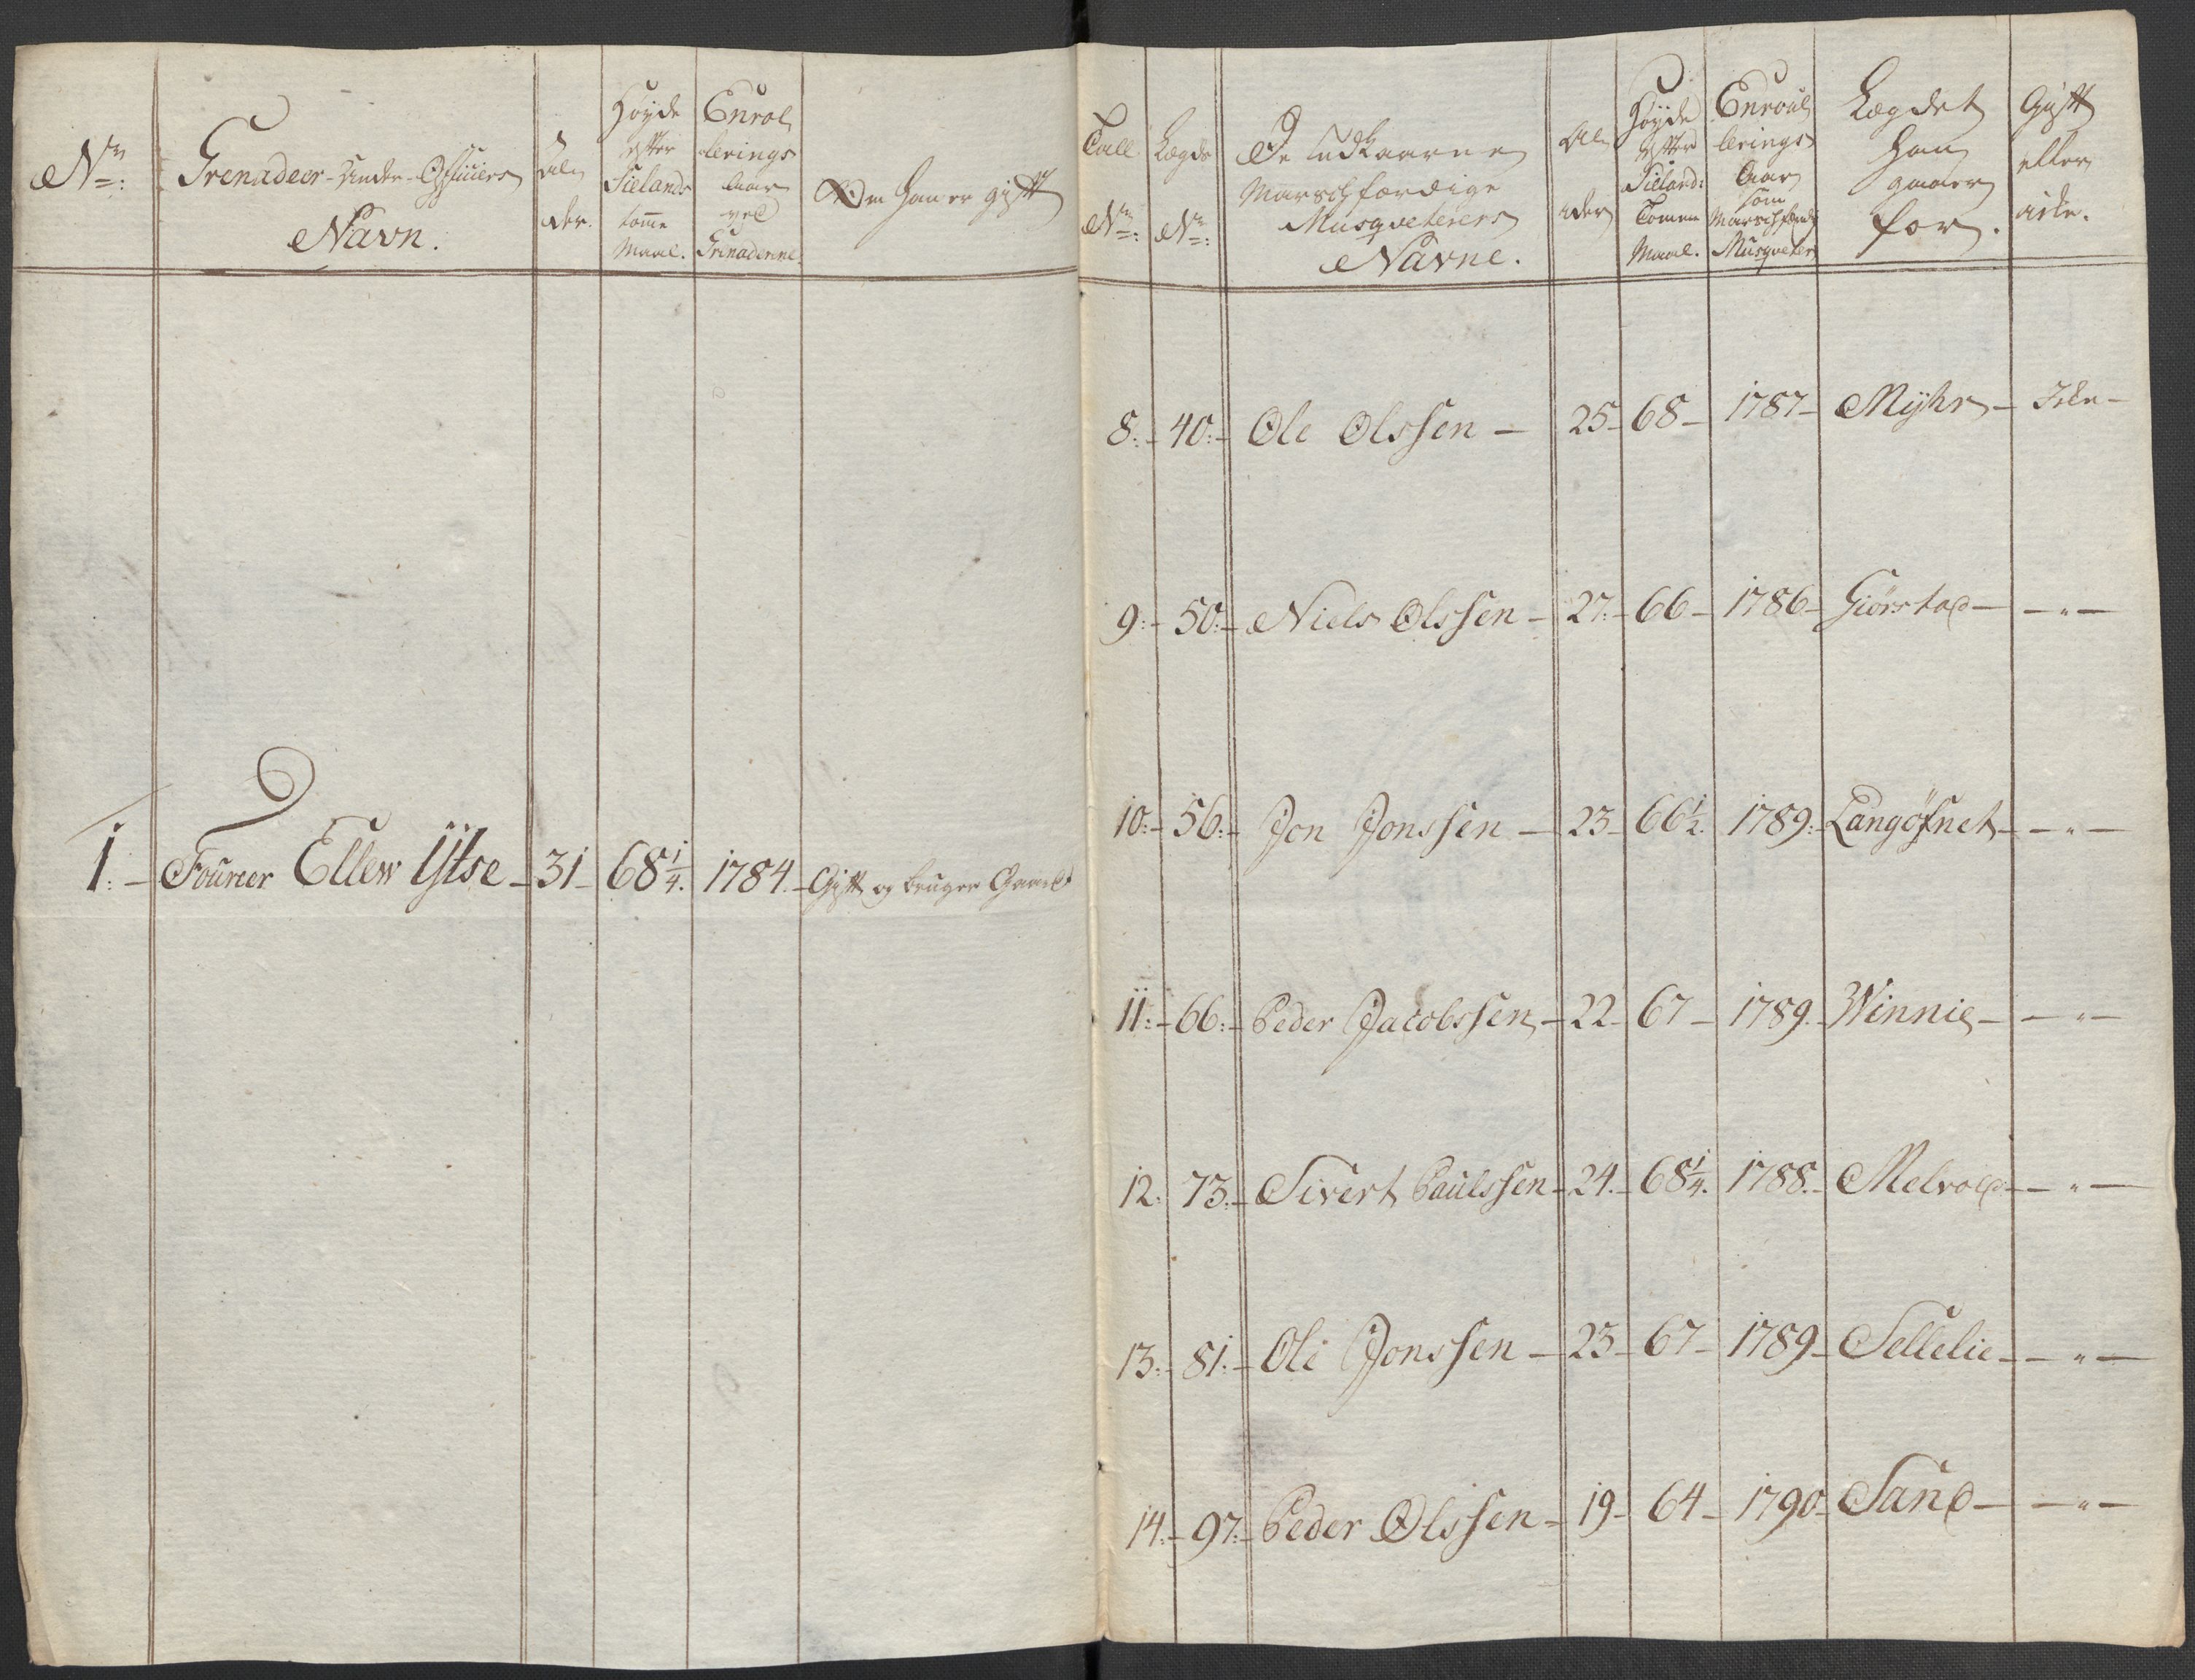 No:
Grenadeer-Under-Officiers
Navn.
Al
der.
Høyde
efter
Siellands
tomme
Maal.
Enrol
lerings
Aar
ved
Grenaderne.
Om han er gift
1. - Foureer Ellew Ystse - 31 - 68 1/4. 1784. - Gift og bruger Gaard
Tall
No:
Lægds
No:
De udkaarne
Marschfærdige
Musqveterers
Navne.
Al
der
Høyde
efter
Siellands
Tomme
Maal.
Enroul
lerings
Aar
som
Marschfærdig
Musqveter
Lægdet
han
gaaer
for.
Gift
eller
icke.
8:- 40:- Ole Olssen - 25- 68- 1787- Myhr - Icke -
9:- 50:- Niels Olssen - 27:- 66- 1786- Giørstad - -"-
10:- 56:- Jon Jonssen - 23- 66 1/2. 1789:- Langøfnet - -"-
11:- 66:- Peder Jacobssen - 22- 67- 1789.- Winnie - -"-
12: 73:- Sivert Paulssen - 24.- 68 1/4. 1788.- Melvold - -"-
13:- 81:- Ole Jonssen - 23- 67- 1789- Sellelie - -"-
14:- 97:- Peder Olssen - 19- 64- 1790- Sand - -"-